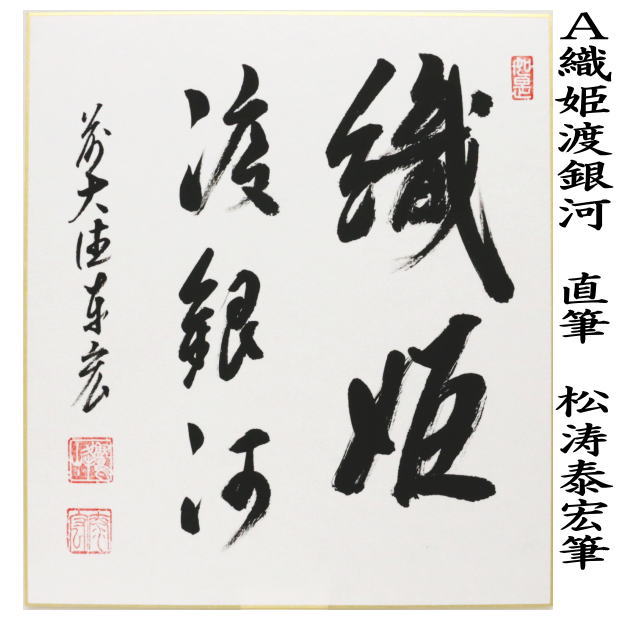 A織姫渡銀河 直筆 松涛泰宏筆
織姫
渡銀河
前大徳泰宏
如是